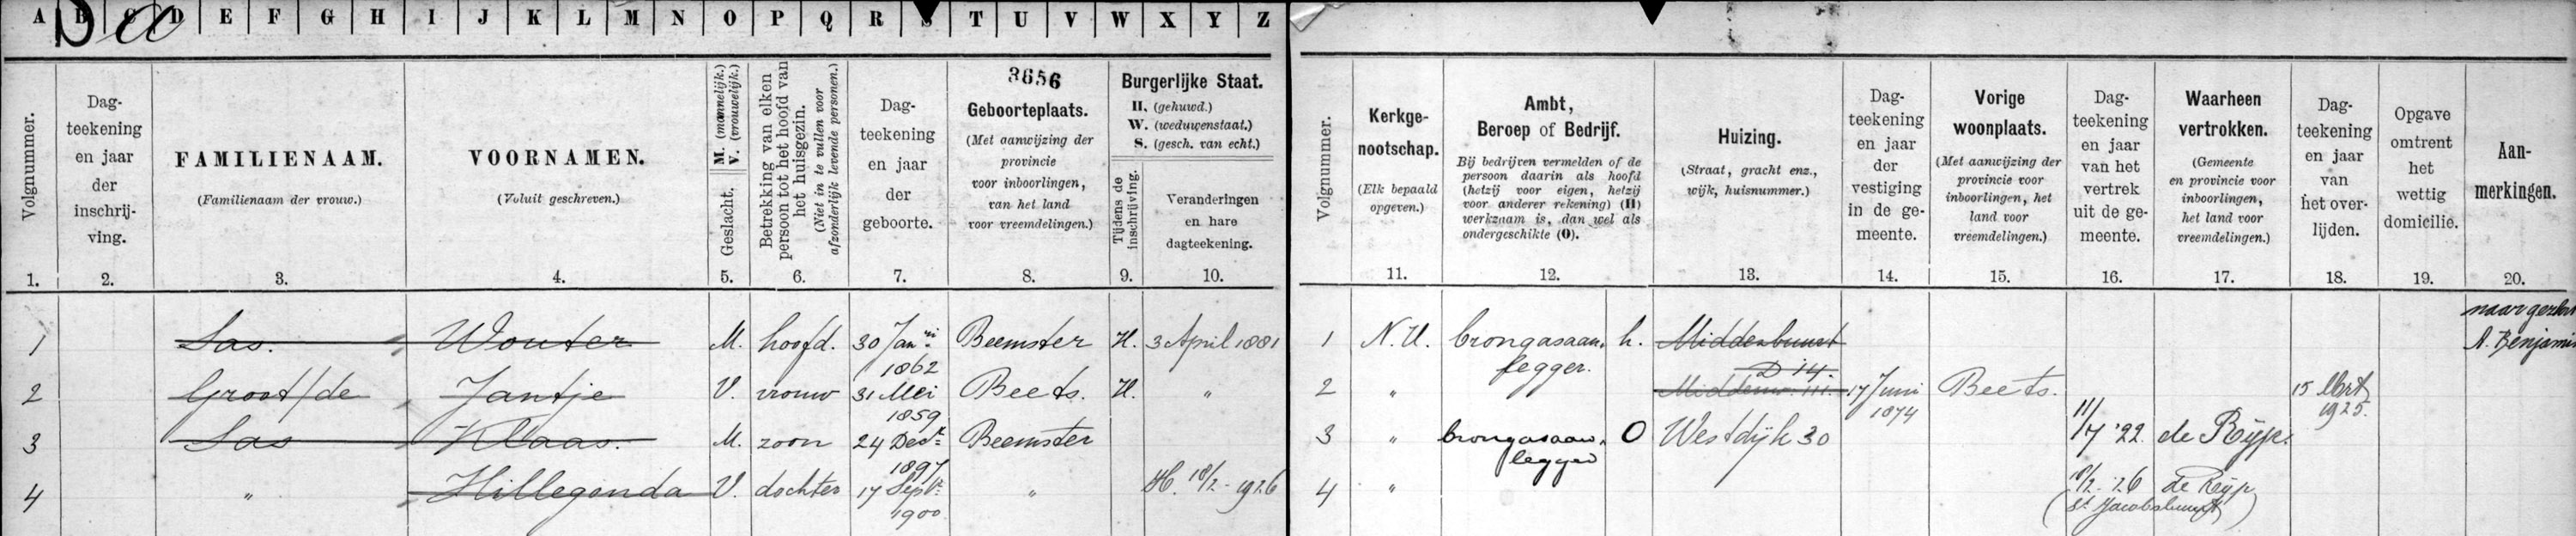 A B C D E F G H I J K L M N O P Q R S T U V W X Y Z
Sa
3656
Volgnummer.
Dag-
teekening
en jaar
der
inschrij-
ving.
FAMILIENAAM.
(Familienaam der vrouw.)
VOORNAMEN.
(Voluit geschreven.)
M. (mannelijk.)
V. (vrouwelijk.)
Geslacht.
Betrekking van elken
persoon tot het hoofd van
het huisgezin.
(Niet in te vullen voor
afzonderlijk levende personen.)
Dag-
teekening
en jaar
der
geboorte.
Geboorteplaats.
(Met aanwijzing der
provincie
voor inboorlingen,
van het land
voor vreemdelingen.)
Burgerlijke Staat.
H. (gehuwd.)
W. (weduwenstaat.)
S. (gesch. van echt.)
Tijdens de
inschrijving.
Veranderingen
en hare
dagteekening.
1. 2. 3. 4. 5. 6. 7. 8. 9. 10.
1 Sas. Wouter M. hoofd. 30 Jan.ri 1862 Beemster H. 3 April 1881
2 Groot/de Jantje V. vrouw 31 Mei 1859 Beets. H. "
3 Sas Klaas. M. zoon 24 Dec.r 1897 Beemster
4 " Hillegonda V. dochter 17 Sept.r 1900 " H. 18/2 - 1926
Volgnummer.
Kerkge-
nootschap.
(Elk bepaald
opgeven.)
Ambt,
Beroep of Bedrijf.
Bij bedrijven vermelden of de
persoon daarin als hoofd
(hetzij voor eigen, hetzij
voor anderer rekening) (H)
werkzaam is, dan wel als
ondergeschikte (O).
Huizing.
(Straat, gracht enz.,
wijk, huisnummer.)
Dag-
teekening
en jaar
der
vestiging
in de ge-
meente.
Vorige
woonplaats.
(Met aanwijzing der
provincie voor
inboorlingen, het
land voor
vreemdelingen.)
Dag-
teekening
en jaar
van het
vertrek
uit de ge-
meente.
Waarheen
vertrokken.
(Gemeente
en provincie voor
inboorlingen,
het land voor
vreemdelingen.)
Dag-
teekening
en jaar
van
het over-
lijden.
Opgave
omtrent
het
wettig
domicilie.
Aan-
merkingen.
11. 12. 13. 14. 15. 16. 17. 18. 19. 20.
1 N.H. brongasaan- h. Middenbuurt
legger. D 14.
A. Benjamin
2 " 17 Juni 1874 Beets. 15 Mrt 1925.
3 " brongasaan- O Westdijk 30 11/7 '22. de Rijp.
legger
4 " 18/2 - 26 de Rijp
(St Jacobsbuurt)